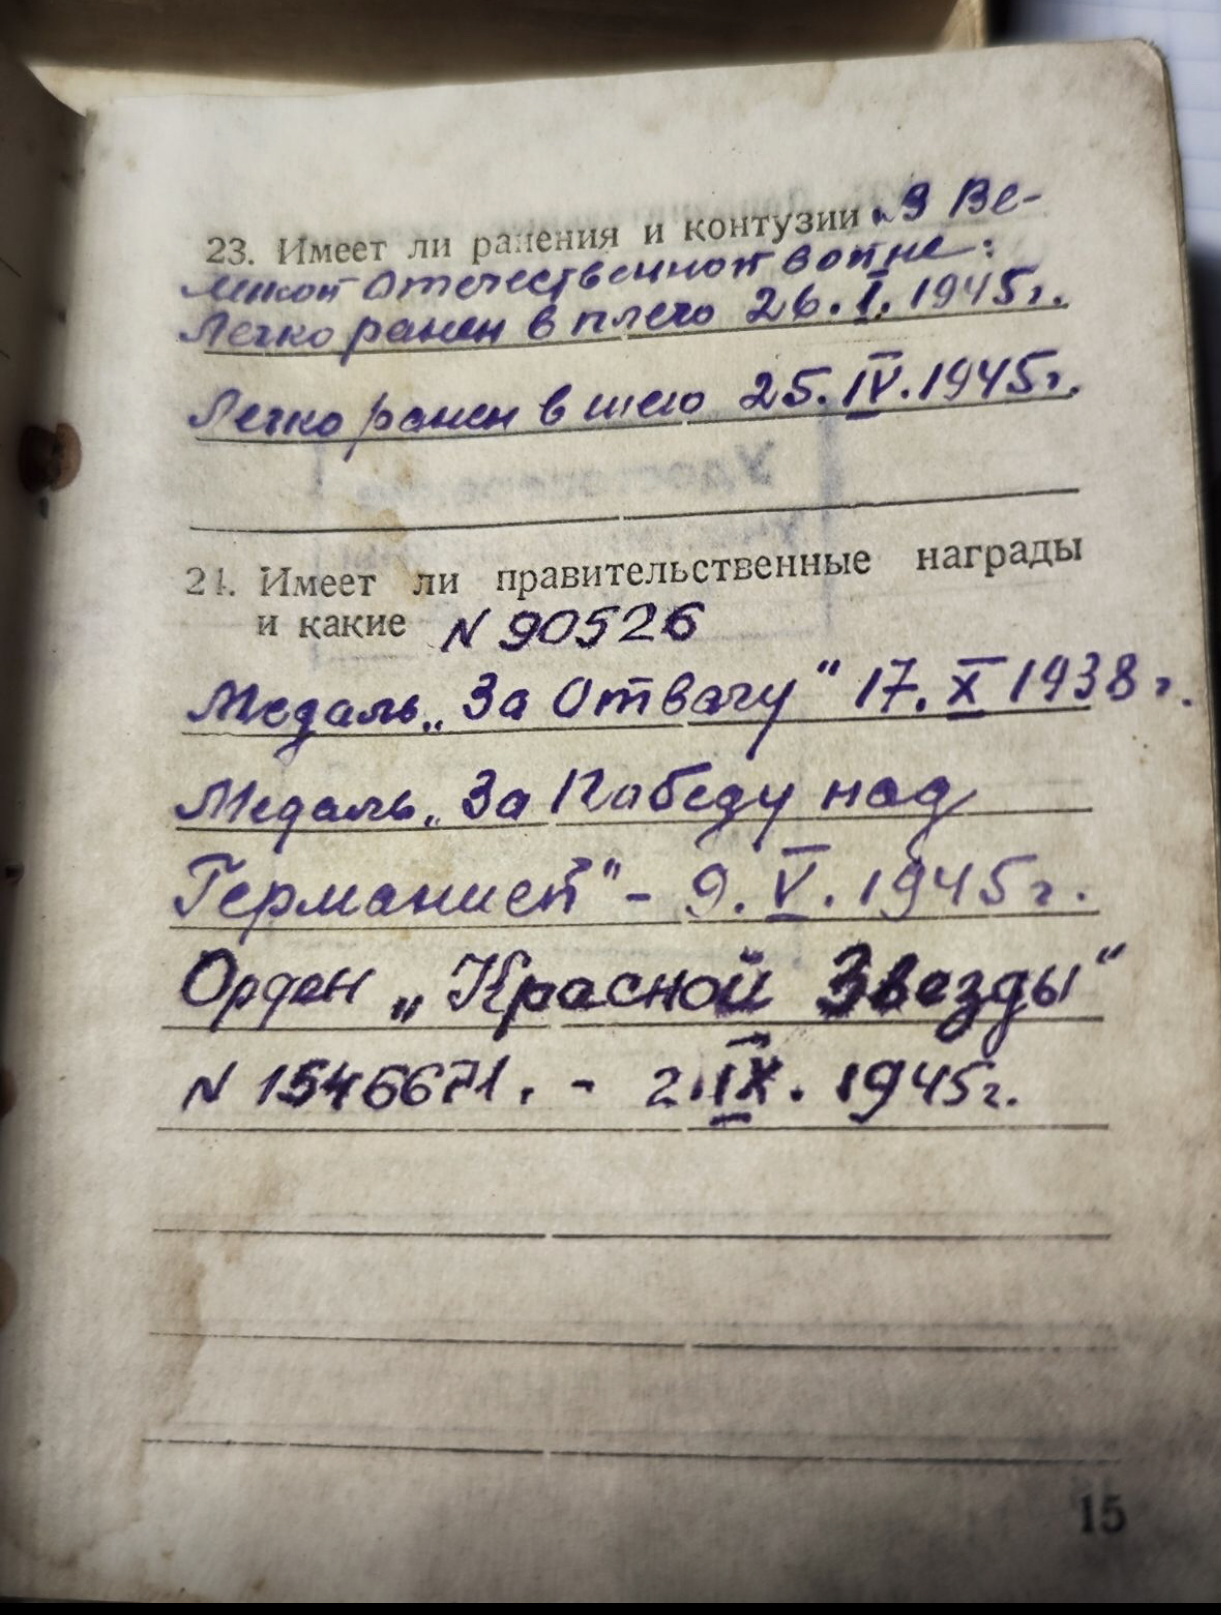 23. Имеет ли ранения и контузии „В Ве-
ликой Отечественной войне:
Легко ранен в плечо 26.I.1945г.
Легко ранен в шею 25.IV.1945г.
24. Имеет ли правительственные награды
и какие N 90526
Медаль „За Отвагу“ 17.X 1938г.
Медаль „За Победу над
Германией“ - 9.V.1945г.
Орден „Красной Звезды“
N 1546671. - 2.IX.1945г.
15